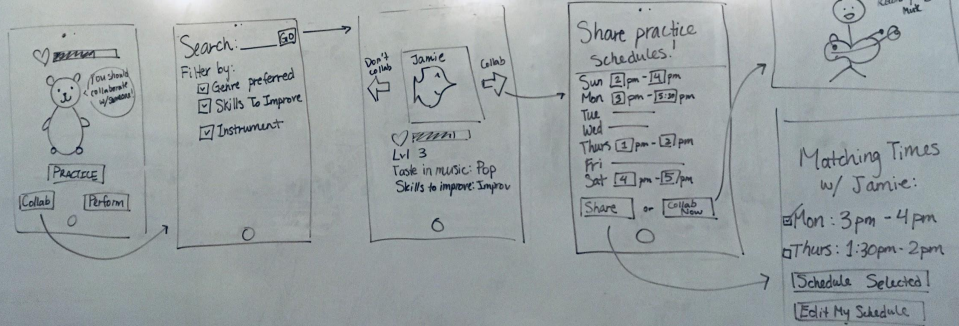 You should
collaborate
w/ someone!
PRACTICE
Collab
Perform
Search: GO
Filter by:
Genre preferred
Skills To Improve
Instrument
Don't
collab
Jamie
Collab
Lvl 3
Taste in music: Pop
Skills to improve: Improv
Share practice
schedules!
Sun 2 pm - 4 pm
Mon 3 pm - 5:30 pm
Tue
Wed
Thurs 1 pm - 2 pm
Fri
Sat 4 pm - 5 pm
Share or Collab
Now
Matching Times
w/ Jamie:
Mon: 3pm - 4pm
Thurs: 1:30pm - 2pm
Schedule Selected
Edit My Schedule